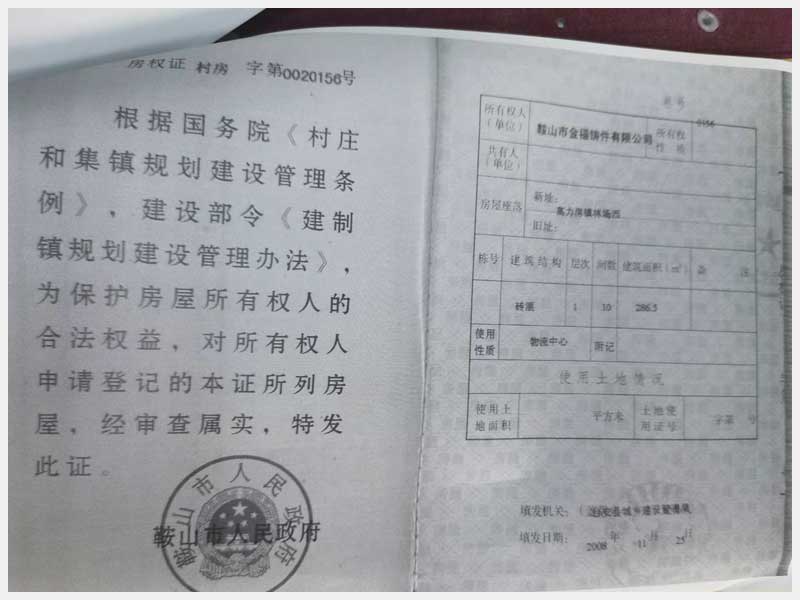 房权证 村房 字第0020156号
根据国务院《村庄
和集镇规划建设管理条
例》，建设部令《建制
镇规划建设管理办法》，
为保护房屋所有权人的
合法权益，对所有权人
申请登记的本证所列房
屋，经审查属实，特发
此证。
鞍山市人民政府
鞍山市人民政府
0156
所有权人（单位） 鞍山市金福铸件有限公司 所有权性质
共有人（单位）
房屋座落 新址：
高力房镇林场西
旧址：
栋号 建筑结构 层次 间数 建筑面积（㎡） 备注
砖混 1 10 286.5
使用性质 物流中心 附记
使用土地情况
使用土地面积 平方米 土地使用证号 字第 号
填发机关：
填发日期：2008年11月25日